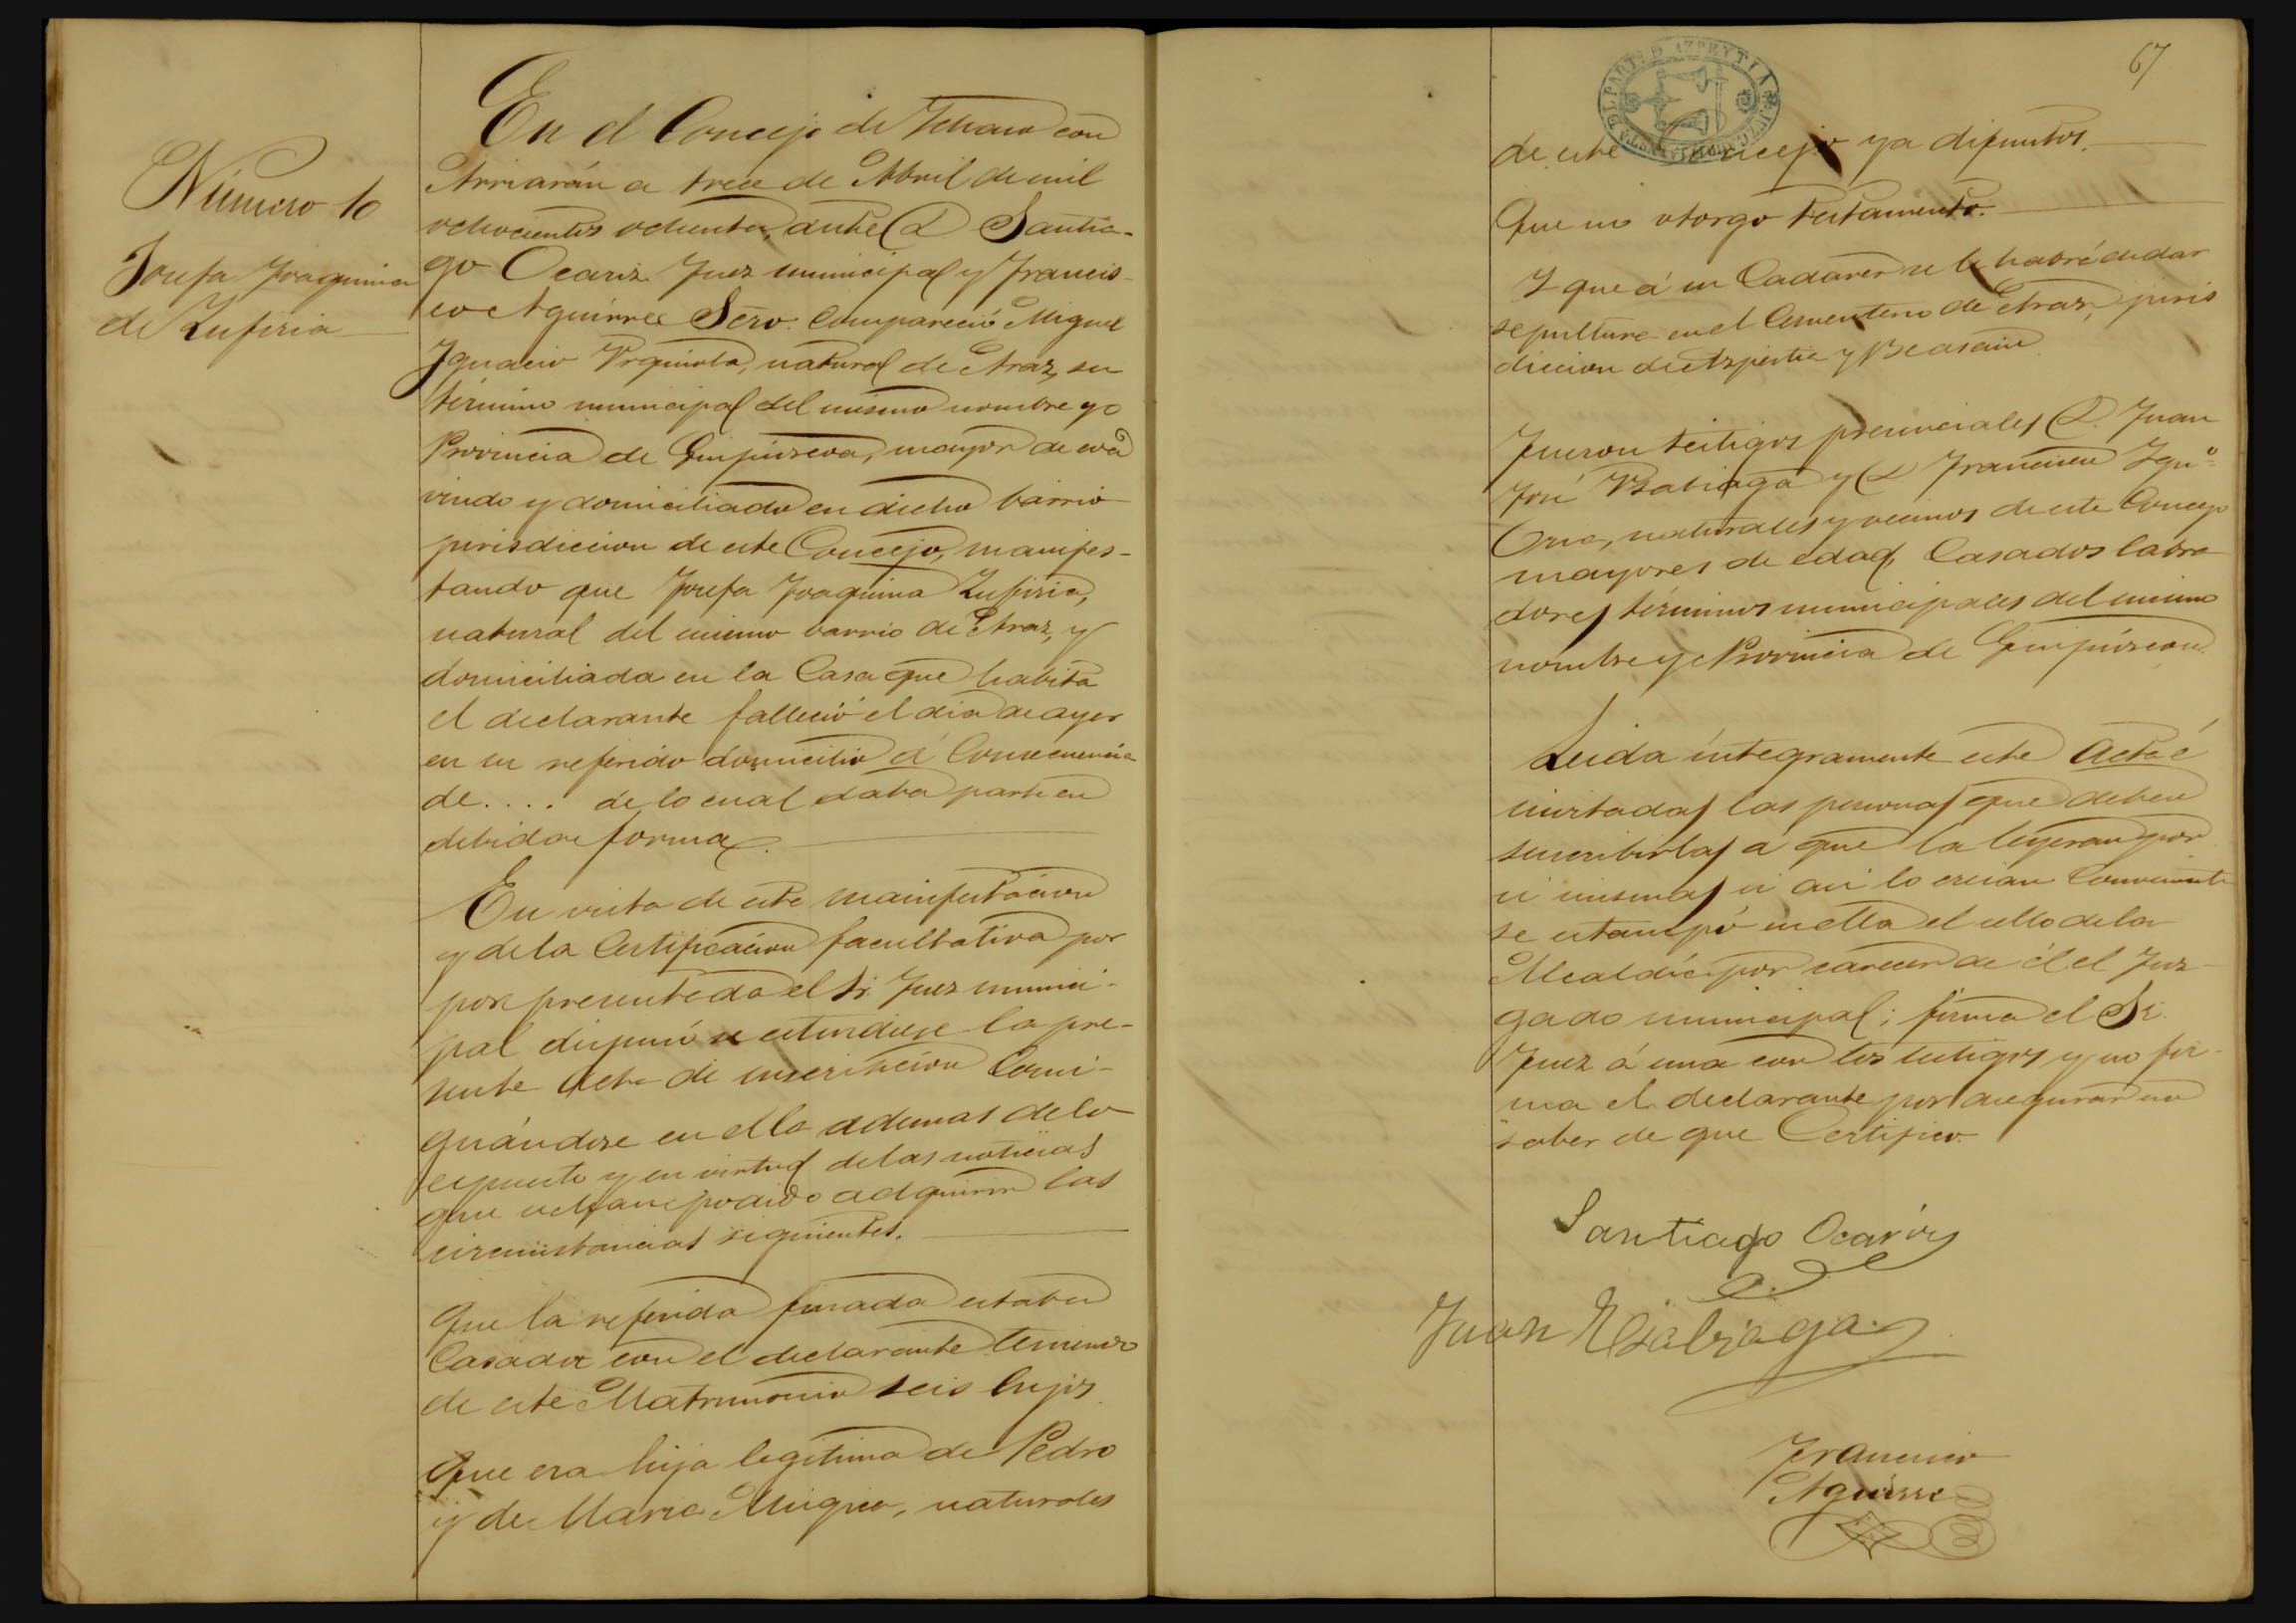 Número 10
Josefa Joaquina
de Zufiria
En el Concejo de Ichaso con
Arriarán a trece de Abril de mil
ochocientos ochenta, ante D. Santia-
go Ocariz Juez municipal y Francis-
co Aguirre Scro. Compareció Miguel
Ignacio Urquiola, natural de Araz, su
término municipal del mismo nombre y
Provincia de Guipúzcoa, mayor de edad
viudo y domiciliado en dicho barrio
jurisdiccion de este Concejo, manifes-
tando que Josefa Joaquina Zufiria,
natural del mismo barrio de Araz, y
domiciliada en la Casa que habita
el declarante falleció el dia de ayer
en su referido domicilio á Consecuencia
de.... de lo cual daba parte en
debida forma.
En vista de esta manifestacion
y de la Certificacion facultativa por
por presentada el Sr. Juez munici-
pal dispuso se estendiese la pre-
sente Acta de inscripcion Consi-
gnándose en ella ademas de lo
espuesto y en virtud de las noticias
que se han podido adquirir las
circunstancias siguientes.
Que la referida finada estaba
Casada con el declarante teniendo
de este Matrimonio seis hijos
Que era hija legitima de Pedro
y de Maria Mugica, naturales
67
DEL PARTº D AZPEYTIA
de este Concejo ya difuntos.
Que no otorgo testamento.
Y que á su Cadaver se le habrá de dar
sepultura en el Cementerio de Araz, juris
diccion de Azpeitia y Beasain
Fueron testigos presenciales D. Juan
José Ysabiaga y D Francisco Ignº
Oria, naturales y vecinos de este Concejo
mayores de edad, Casados labra
dores términos municipales del mismo
nombre y Provincia de Guipúzcoa
Leida íntegramente este Acta é
invitadas las personas que deben
suscribirlas a que la leyeran por
si mismas si asi lo creian Conveniente
se estampó en ella el sello de la
Alcaldía por carecer de él el Juz
gado municipal; firma el Sr.
Juez á una con los testigos y no fir-
ma el declarante por asegurar no
saber de que Certifico.
Santiago Ocariz
Juan Ysabiaga
Francisco
Aguirre